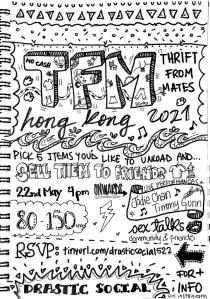 NO CASH
TFM
THRIFT
FROM
MATES
hong kong 2021
PICK 5 ITEMS YOU'D LIKE TO UNLOAD AND...
SELL THEM TO FRIENDS
22nd MAY 4pm ONWARDS
LIVE PERFORMANCES
Jade Chan
Timmy Gunn
80 150
sex talks
community & friends
RSVP: tinyurl.com/drasticsocial522
DRASTIC SOCIAL
FOR +
INFO
ON INSTAGRAM